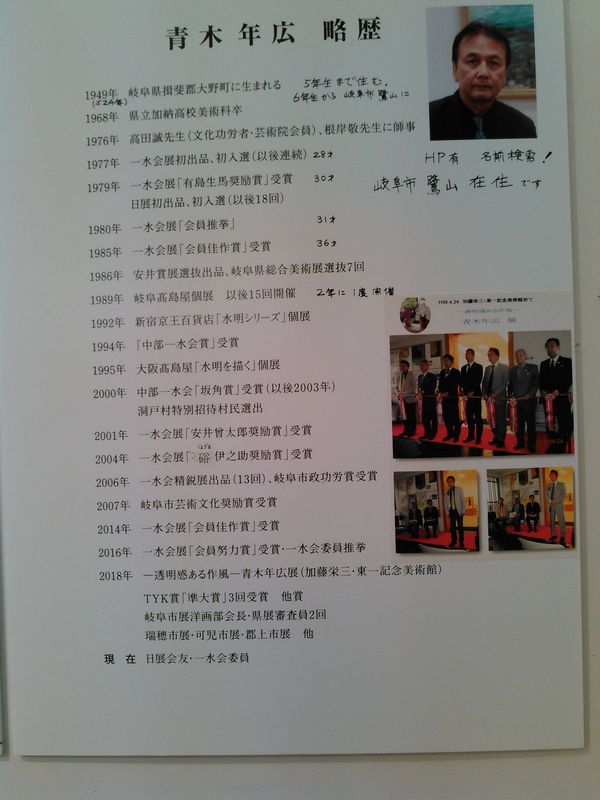 青木年広 略歴
1949年 岐阜県揖斐郡大野町に生まれる 5年生まで住む.
(S24年) 6年生から 岐阜市 鷺山に
1968年 県立加納高校美術科卒
1976年 高田誠先生(文化功労者・芸術院会員)、根岸敬先生に師事
1977年 一水会展初出品、初入選(以後連続) 28才
HP有 名前検索!
1979年 一水会展「有島生馬奨励賞」受賞 30才
岐阜市 鷺山 在住 です
日展初出品、初入選(以後18回)
1980年 一水会展「会員推挙」 31才
1985年 一水会展「会員佳作賞」受賞 36才
1986年 安井賞展選抜出品、岐阜県総合美術展選抜7回
1989年 岐阜髙島屋個展 以後15回開催 2年に1度開催
H30.4.24 加藤栄三・東一記念美術館於て
―透明感ある作風―
青木年広 展
1992年 新宿京王百貨店「水明シリーズ」個展
1994年 「中部一水会賞」受賞
1995年 大阪髙島屋「水明を描く」個展
2000年 中部一水会「坂角賞」受賞(以後2003年)
洞戸村特別招待村民選出
2001年 一水会展「安井曾太郎奨励賞」受賞
2004年 一水会展「硲伊之助奨励賞」受賞
2006年 一水会精鋭展出品(13回)、岐阜市政功労賞受賞
2007年 岐阜市芸術文化奨励賞受賞
2014年 一水会展「会員佳作賞」受賞
2016年 一水会展「会員努力賞」受賞・一水会委員推挙
2018年 ―透明感ある作風―青木年広展(加藤栄三・東一記念美術館)
TYK賞「準大賞」3回受賞 他賞
岐阜市展洋画部会長・県展審査員2回
瑞穂市展・可児市展・郡上市展 他
現在 日展会友・一水会委員